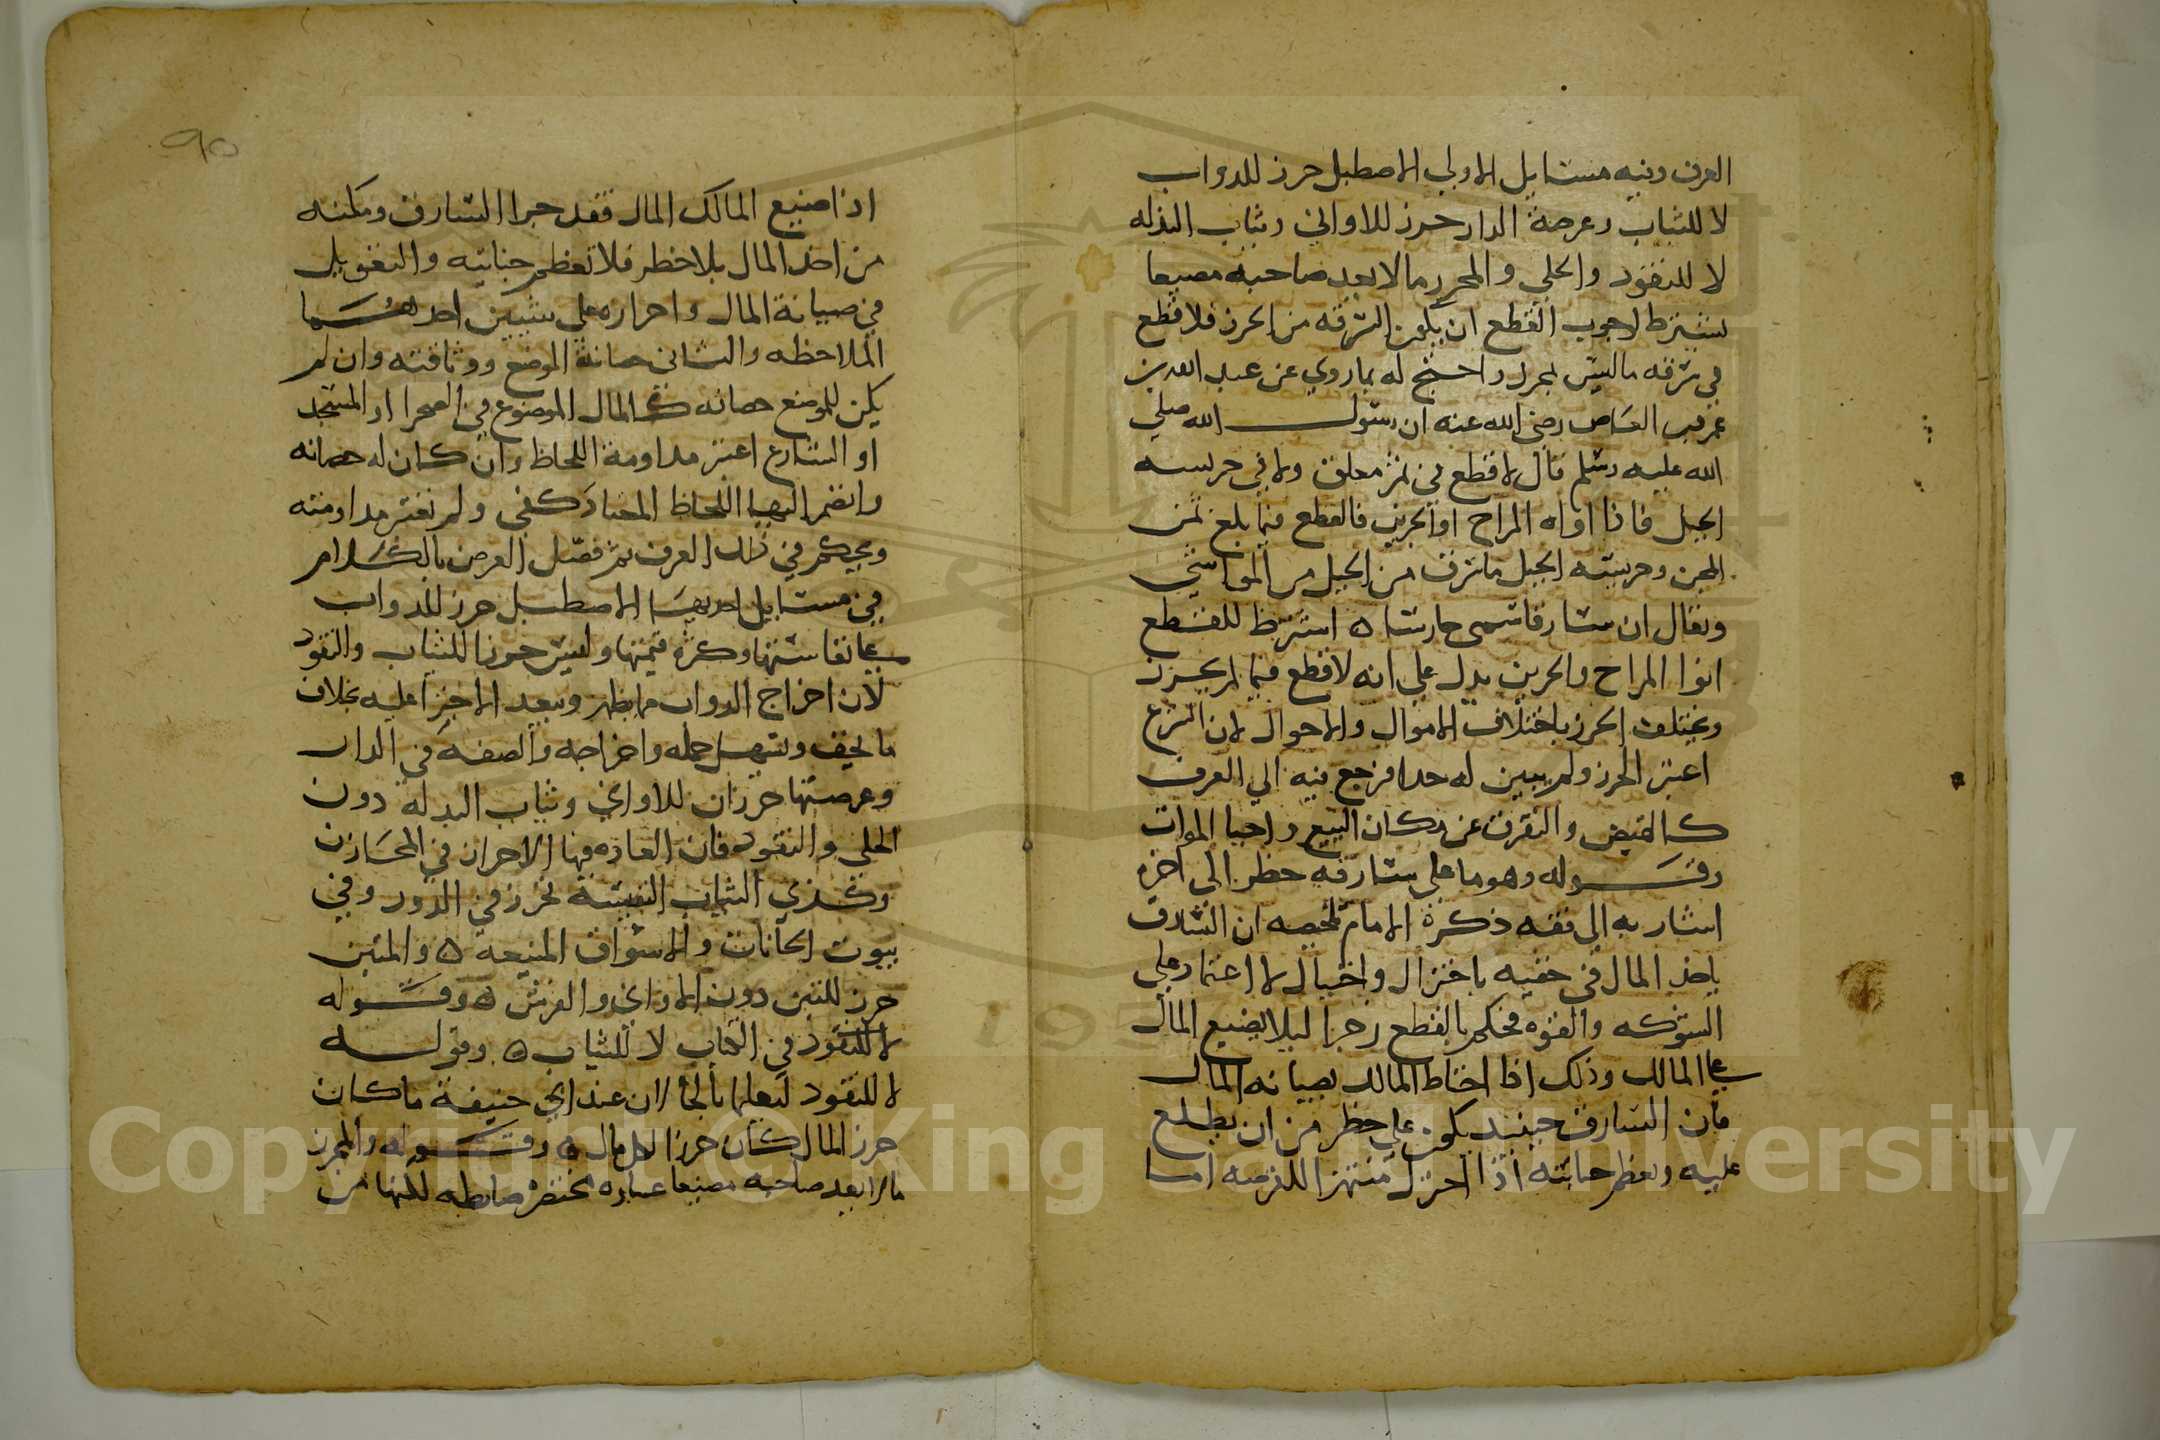 العرف وفيه مسايل الاولي الاصطبل حرز للدواب
لا للثياب وعرصة الدار حرز للاواني وثياب البذله
لا للنقود والحلي والمحرر ما لا يعد صاحبه مضيعا
يشترط لوجوب القطع ان يكون السرقه من الحرز فلا قطع
في سرقه ما ليس بمحرز واحتج له بما روي عن عبد الله بن
عمرو بن العاص رضي الله عنه ان رسول الله صلي
الله عليه وسلم قال لا قطع في ثمر معلق ولا في حريسه
الجبل فاذا اواه المراح او الجرين فالقطع فيما بلغ ثمن
المجن وحريسته الجبل ما سرق من الجبل من المواشي
ويقال ان سارقا سمي حارسا ه اشترط للقطع
ايوا المراح والجرين يدل علي انه لا قطع فيما لم يحرز
ويختلف الحرز باختلاف الاموال والاحوال لان الشرع
اعتبر الحرز ولم يبين له حدا فرجع فيه الي العرف
كالقبض والتفرق عن مكان البيع واحيا الموات
وقوله وهو ما علي سارقه خطر الي اخره
اشار به الي فقه ذكره الامام تلخيصه ان السارق
ياخذ المال في خفيه باختزال واحتيال لا اعتماد علي
الشوكه والقوه فحكم بالقطع زجرا ليلا يضيع المال
علي المالك وذلك اذا احتاط المالك بصيانه المال
فان السارق حينيذ يكون علي خطر من ان يطلع
عليه ويعظم جنايته اذا اختزل منتهزا للفرصه اما
90
اذا ضيع المالك المال فقد جرا السارق ومكنه
من اخذ المال بلا خطر فلا تعظم جنايته والتعويل
في صيانة المال واحرازه علي شيين احدهما
الملاحظه والثاني حصانة الموضع ووثاقته وان لم
يكن للموضع حصانه كالمال الموضوع في الصحرا او المسجد
او الشارع اعتبر مداومة اللحاظ وان كان له حصانه
وانضم اليها اللحاظ المعتاد كفي ولم نعتبر مداومته
ويحكم في ذلك العرف ثم فصل الغرض بالكلام
في مسايل احديها الاصطبل حرز للدواب
علي نفاستها وكثرة قيمتها وليس حرزا للثياب والنقود
لان اخراج الدواب مما يظهر ويبعد الاجترا عليه بخلاف
ما يخف ويسهل حمله واخراجه والصفه في الدار
وعرصتها حرزان للاواني وثياب البذلة دون
الحلي والنقود فان العاده فيها الاحراز في المخازن
وكذي الثياب النفيسة تحرز في الدور وفي
بيوت الخانات والاسواق المنيعه ه والمتبن
حرز للتبن دون الاواني والفرش ه وقوله
لا للنقود في الكتاب لا للثياب ه وقوله
لا للنقود ليعلما بالحا لان عند ابي حنيفة ما كان
حرز المال كان حرزا لكل مال ه وقوله والمحرز
ما لا يعد صاحبه مضيعا عباره مختصره ضابطه لكنها من